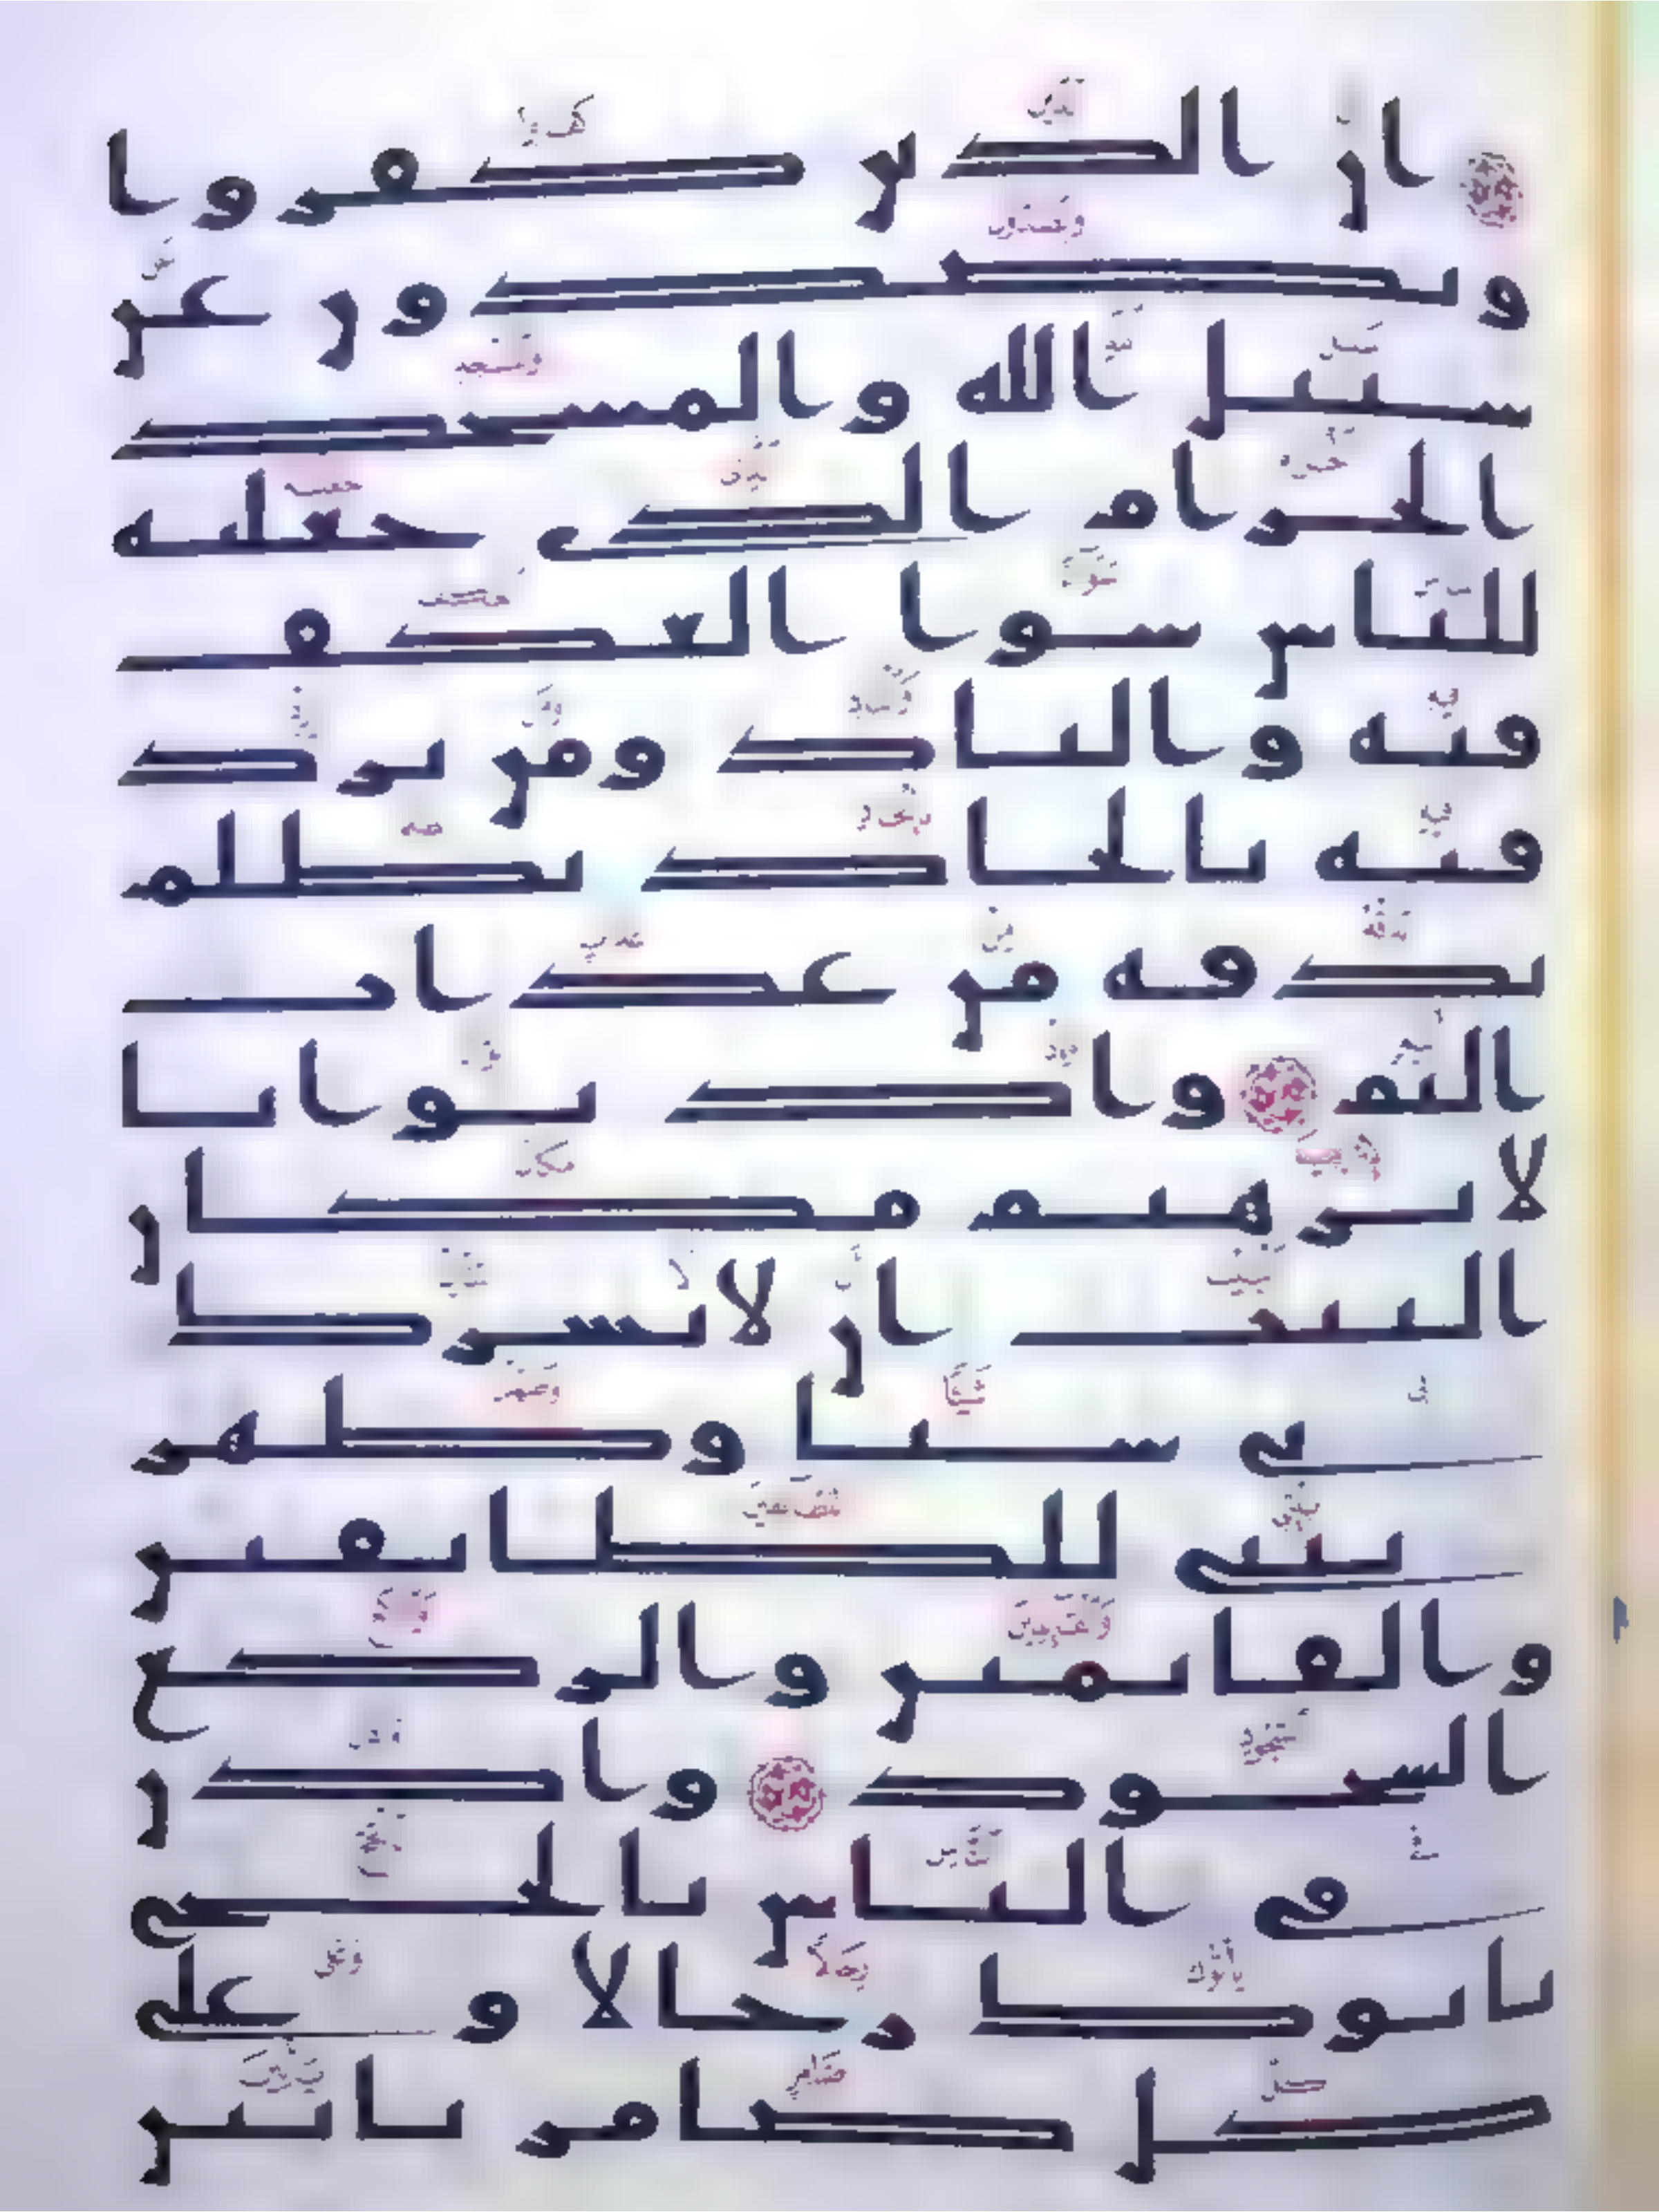 ان الذين كفروا
ويصدون عن
سبيل الله والمسجد
الحرام الذى جعلنه
للناس سوا العكف
فيه والباد ومن يرد
فيه بالحاد بظلم
نذقه من عذاب
اليم واذ بوانا
لابرهيم مكان
البيت ان لا تشرك
بى شيا وطهر
بيتى للطايفين
والقايمين والركع
السجود واذن
فى الناس بالحج
ياتوك رجالا وعلى
كل ضامر ياتين